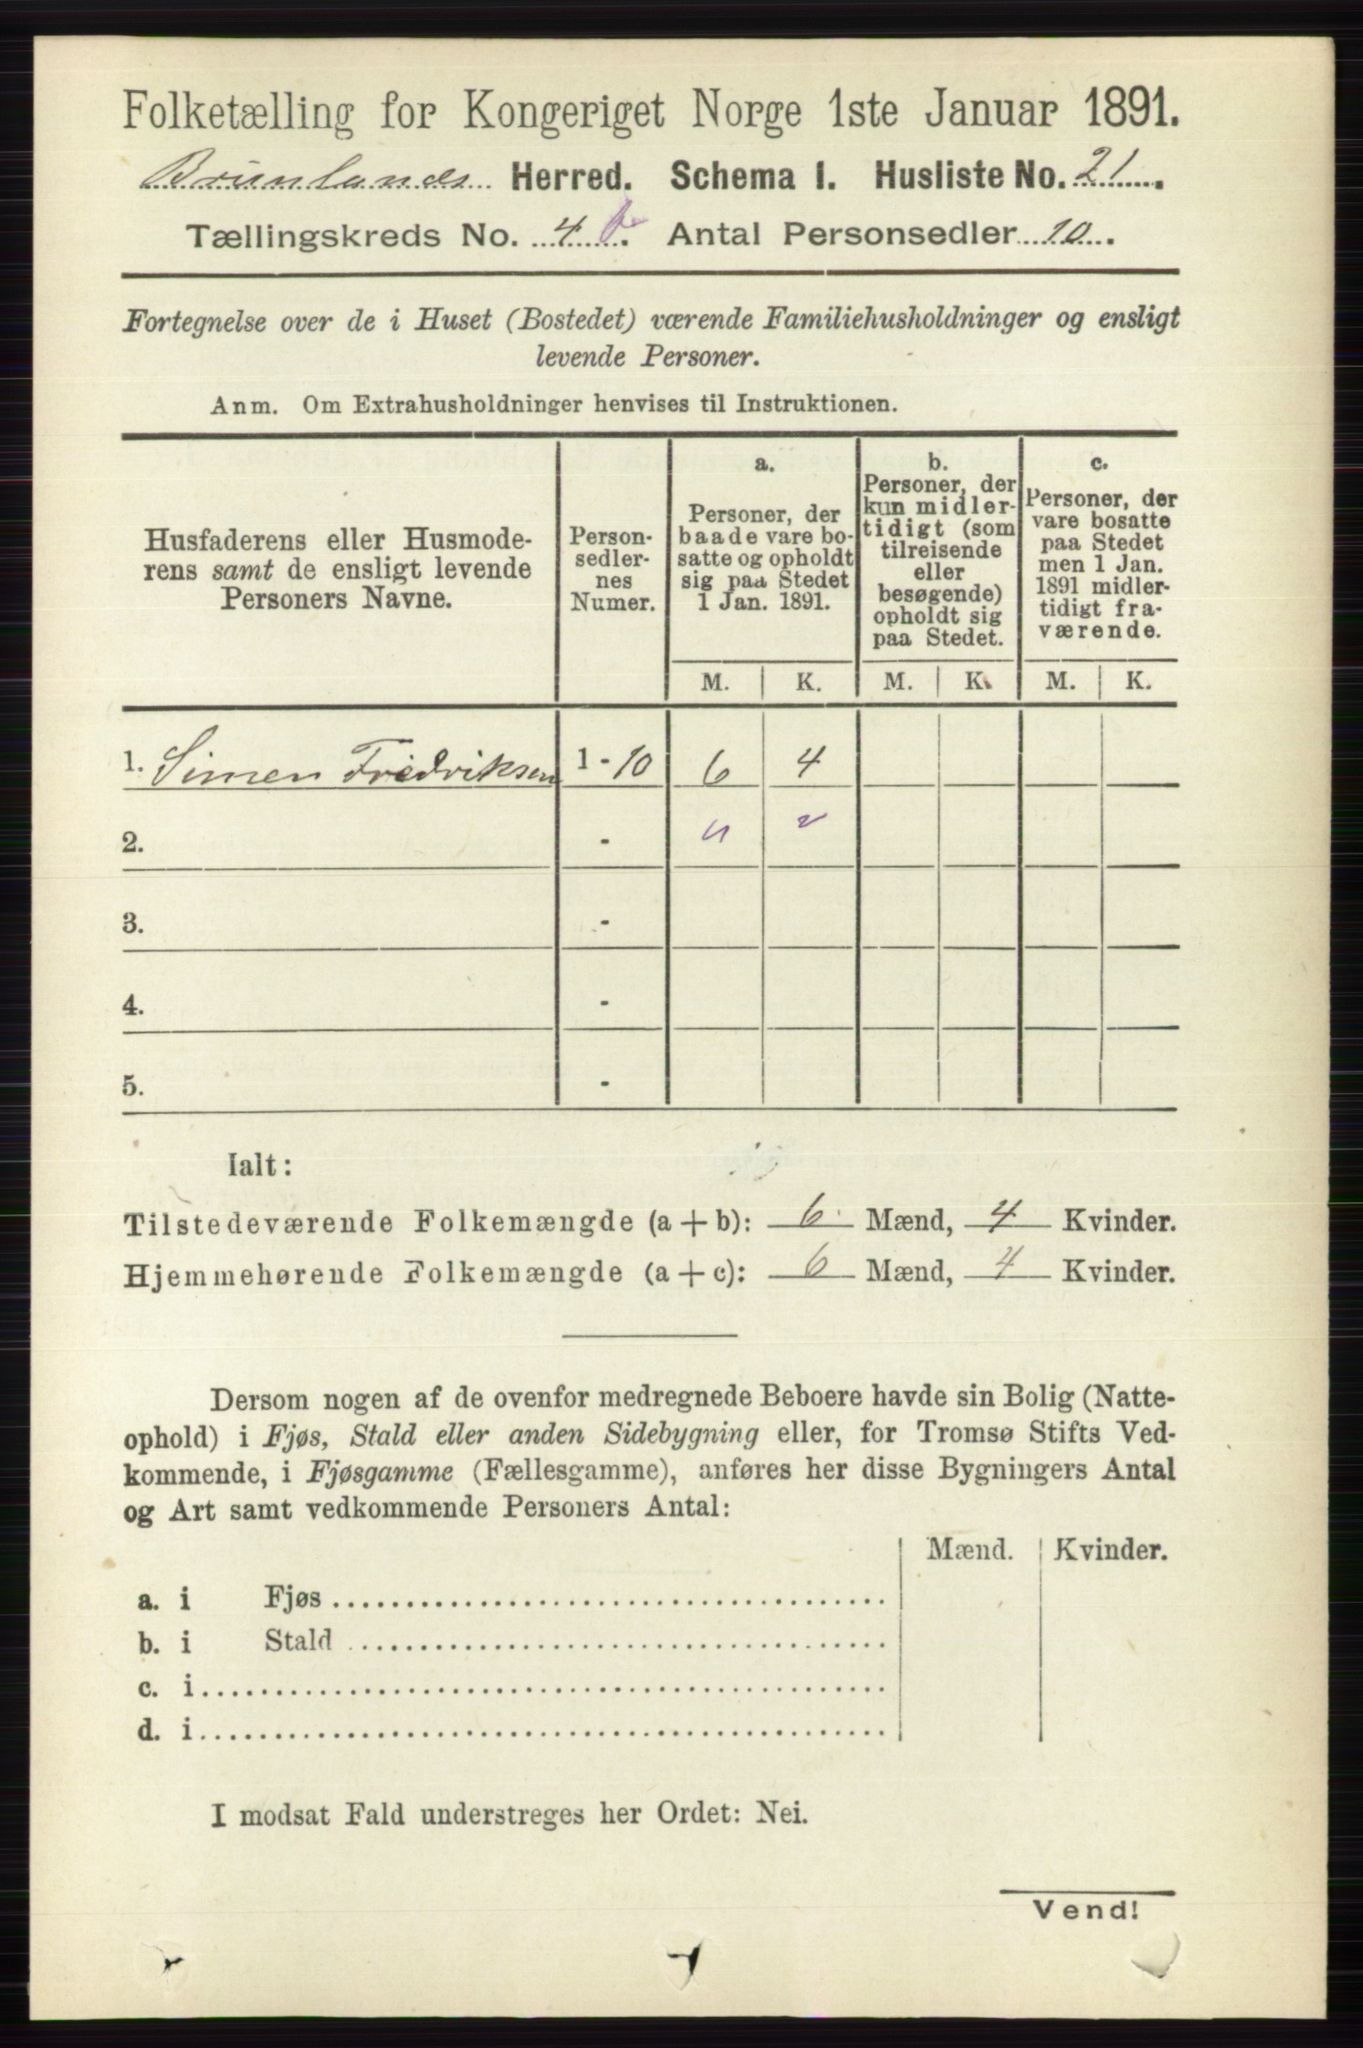 Folketælling for Kongeriget Norge 1ste Januar 1891.
Brunlanes Herred. Schema I. Husliste No. 21.
Tællingskreds No. 4. Antal Personsedler 10.
Fortegnelse over de i Huset (Bostedet) værende Familiehusholdninger og ensligt
levende Personer.
Anm. Om Extrahusholdninger henvises til Instruktionen.
Husfaderens eller Husmode-
rens samt de ensligt levende
Personers Navne.
Person-
sedler-
nes
Numer.
a.
Personer, der
baade vare bo-
satte og opholdt
sig paa Stedet
1 Jan. 1891.
b.
Personer, der
kun midler-
tidigt (som
tilreisende
eller
besøgende)
opholdt sig
paa Stedet.
c.
Personer, der
vare bosatte
paa Stedet
men 1 Jan.
1891 midler-
tidigt fra-
værende.
M. K. M. K. M. K.
1. Simen Fredriksen 1 - 10 6 4
2. -
3. -
4. -
5. -
Ialt:
Tilstedeværende Folkemængde (a + b): 6 Mænd, 4 Kvinder.
Hjemmehørende Folkemængde (a + c): 6 Mænd, 4 Kvinder.
Dersom nogen af de ovenfor medregnede Beboere havde sin Bolig (Natte-
ophold) i Fjøs, Stald eller anden Sidebygning eller, for Tromsø Stifts Ved-
kommende, i Fjøsgamme (Fællesgamme), anføres her disse Bygningers Antal
og Art samt vedkommende Personers Antal:
Mænd. Kvinder.
a. i Fjøs
b. i Stald
c. i
d. i
I modsat Fald understreges her Ordet: Nei.
Vend!